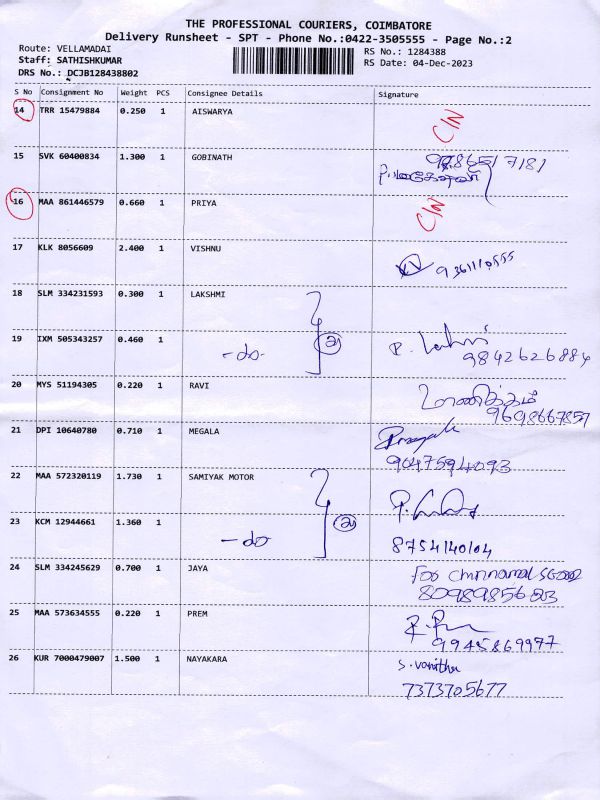 THE PROFESSIONAL COURIERS, COIMBATORE
Delivery Runsheet - SPT - Phone No.:0422-3505555 - Page No.:2
Route: VELLAMADAI
Staff: SATHISHKUMAR
DRS No.: DCJB128438802
RS No.: 1284388
RS Date: 04-Dec-2023
S No Consignment No Weight PCS Consignee Details Signature
14 TRR 15479884 0.250 1 AISWARYA C/N
15 SVK 60400834 1.300 1 GOBINATH
16 MAA 861446579 0.660 1 PRIYA C/N
17 KLK 8056609 2.400 1 VISHNU 9361110555
18 SLM 334231593 0.300 1 LAKSHMI
19 IXM 505343257 0.460 1 -do- 9842626884
20 MYS 51194305 0.220 1 RAVI மாணிக்கம்
9698667857
21 DPI 10640780 0.710 1 MEGALA
9047594093
22 MAA 572320119 1.730 1 SAMIYAK MOTOR
23 KCM 12944661 1.360 1 -do 8754140104
24 SLM 334245629 0.700 1 JAYA for
25 MAA 573634555 0.220 1 PREM
9945869977
26 KUR 7000479007 1.500 1 NAYAKARA S. Vanitha
7373705677